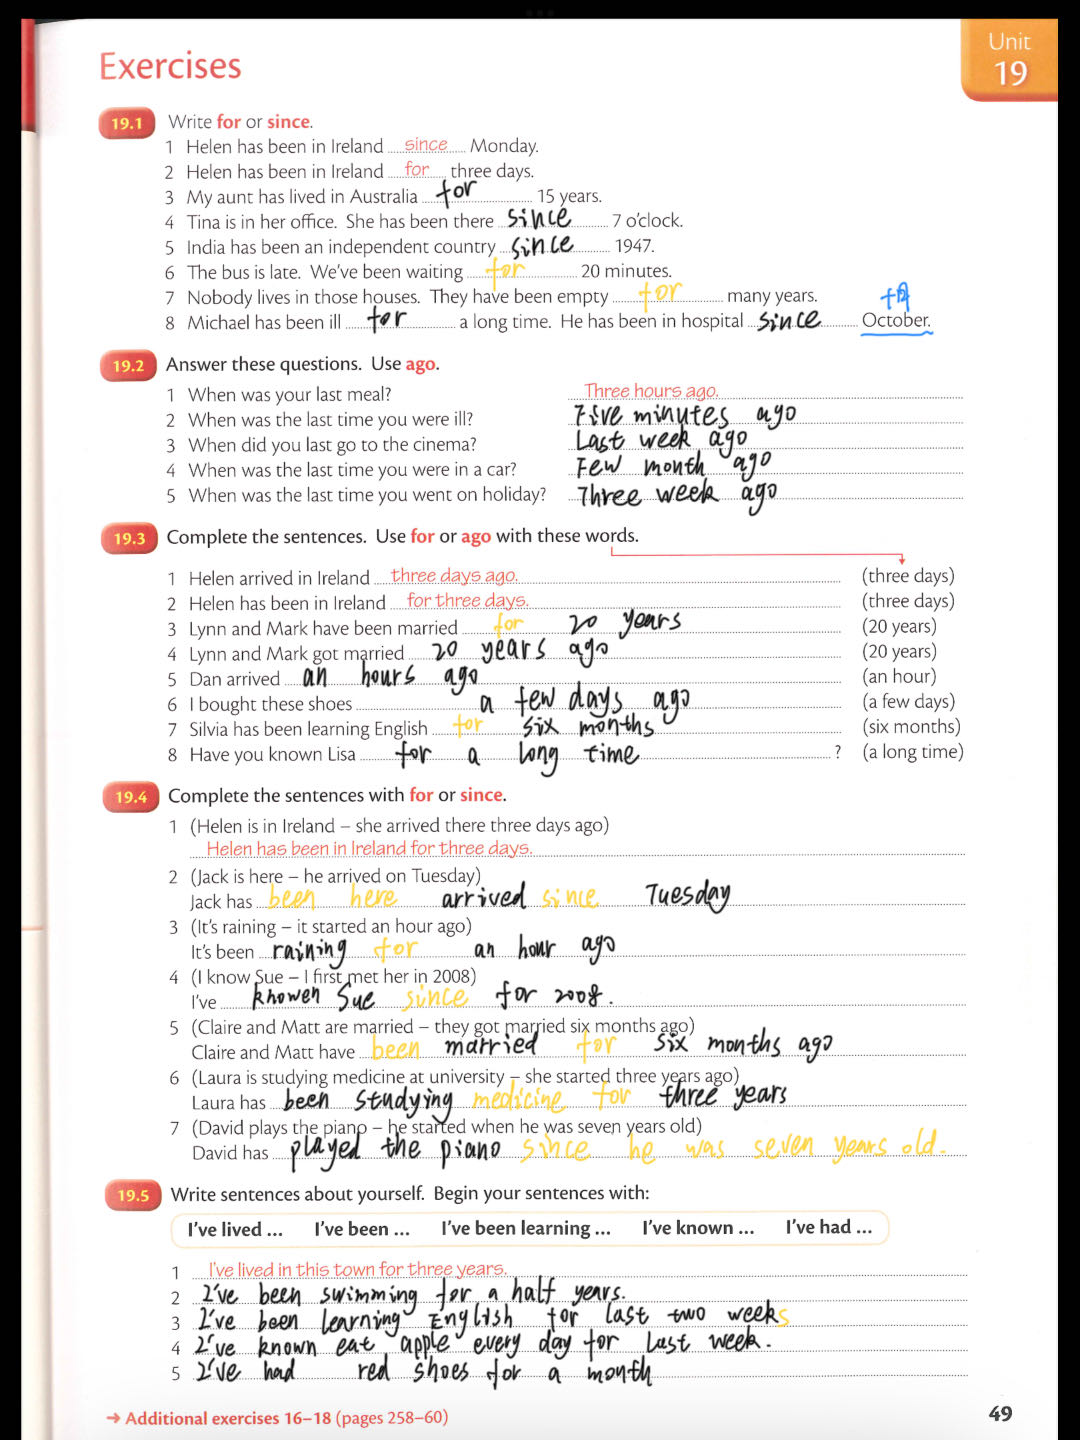 Unit
19
Exercises
19.1 Write for or since.
1 Helen has been in Ireland since Monday.
2 Helen has been in Ireland for three days.
3 My aunt has lived in Australia for 15 years.
4 Tina is in her office. She has been there since 7 o'clock.
5 India has been an independent country since 1947.
6 The bus is late. We've been waiting for 20 minutes.
7 Nobody lives in those houses. They have been empty for many years.
8 Michael has been ill for a long time. He has been in hospital since October.
19.2 Answer these questions. Use ago.
1 When was your last meal? Three hours ago.
2 When was the last time you were ill? Five minutes ago
3 When did you last go to the cinema? Last week ago
4 When was the last time you were in a car? Few month ago
5 When was the last time you went on holiday? Three week ago
19.3 Complete the sentences. Use for or ago with these words.
1 Helen arrived in Ireland three days ago. (three days)
2 Helen has been in Ireland for three days. (three days)
3 Lynn and Mark have been married for 20 years (20 years)
4 Lynn and Mark got married 20 years ago (20 years)
5 Dan arrived an hours ago (an hour)
6 I bought these shoes a few days ago (a few days)
7 Silvia has been learning English for six months (six months)
8 Have you known Lisa for a long time ? (a long time)
19.4 Complete the sentences with for or since.
1 (Helen is in Ireland – she arrived there three days ago)
Helen has been in Ireland for three days.
2 (Jack is here – he arrived on Tuesday)
Jack has been here arrived since Tuesday
3 (It's raining – it started an hour ago)
It's been raining for an hour ago
4 (I know Sue – I first met her in 2008)
I've knowen Sue since for 2008.
5 (Claire and Matt are married – they got married six months ago)
Claire and Matt have been married for six months ago
6 (Laura is studying medicine at university – she started three years ago)
Laura has been studying medicine for three years
7 (David plays the piano – he started when he was seven years old)
David has played the piano since he was seven years old.
19.5 Write sentences about yourself. Begin your sentences with:
I've lived ... I've been ... I've been learning ... I've known ... I've had ...
1 I've lived in this town for three years.
2 I've been swimming for a half years.
3 I've been learning English for last two weeks
4 I've known eat apple every day for last week.
5 I've had red shoes for a month
→ Additional exercises 16–18 (pages 258–60)
49